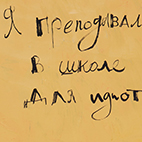 Я преподавал
в школе
для идиот